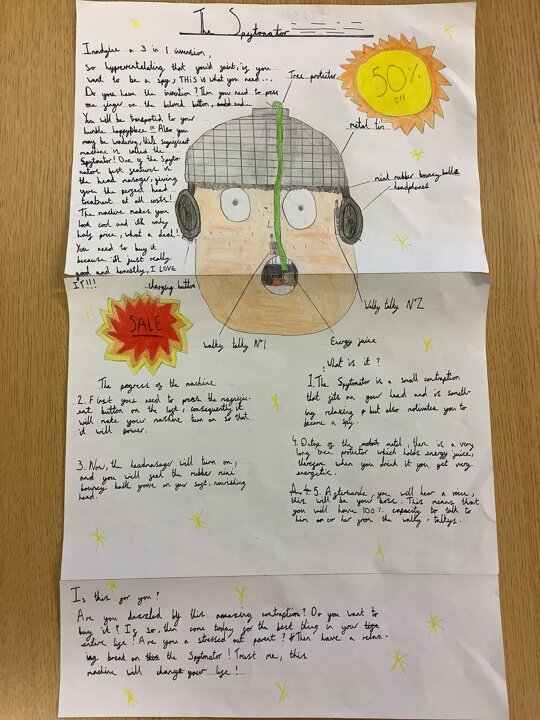 The Spytonator
Imagine a 3 in 1 invention,
so hyperventelating that you'd faint, if you
want to be a spy, THiS is what you need...
Do you have the invention? Then you need to press
one finger on the button, and
You will be transported to your
humble happyplace!!! Also you
may be wondering, this
machine is called the
Spytonator! One of the Spyto-
nators best features is
the head massager, giving
you the perfect head
treatment at all costs!
The machine makes you
look cool and it's only
half price, what a deal!
You need to buy it
because it's just really
good and honestly, I LOVE
IT!!!
50%
off
Tree protector
metal tin
mini rubber bouncy balls
headphones
charging button
Walky talky N°2
walky talky N°1
Energy juice
SALE
The progress of the machine
2. First you need to press the magnific-
ent button on the left, consequently it
will make your machine turn on so that
it will power.
3. Now, the headmassager will turn on,
and you will feel the rubber mini
bouncy balls groove on your soft, nourishing
head.
What is it?
1. The Spytonator is a small contraption
that sits on your head and is someth-
ing relaxing & but also motivates you to
become a spy.
4. Ontop of the metal, there is a very
long tree protector which holds energy juice,
therefore when you drink it you get very
energetic.
5. Afterwards, you will hear a voice,
this will be your boss. This means that
you will have 100% capacity to talk to
him or her from the walky-talkys.
Is this for you?
Are you dazzled by this amazing contraption? Do you want to
buy it? If so, then come today for the best thing in your
entire life! Are you a stressed out parent? Then have a relax-
ing break on the Spytonator! Trust me, this
machine will change your life!